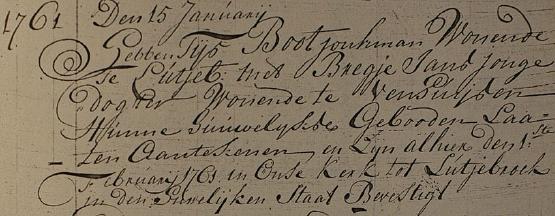 1761 Den 15 January
Hebben Tijs Boot jonkman Wonende
te Lutjeb: met Bregje Jans jonge
dogter Wonende te Venhuijsen
Hunne Huwelijkse Gebooden Laa-
ten Aantekenen en Zyn alhier den 1:ste
Februarij 1761 in Onse Kerk tot Lutjebroek
in den Huwelijken Staat Bevestigt